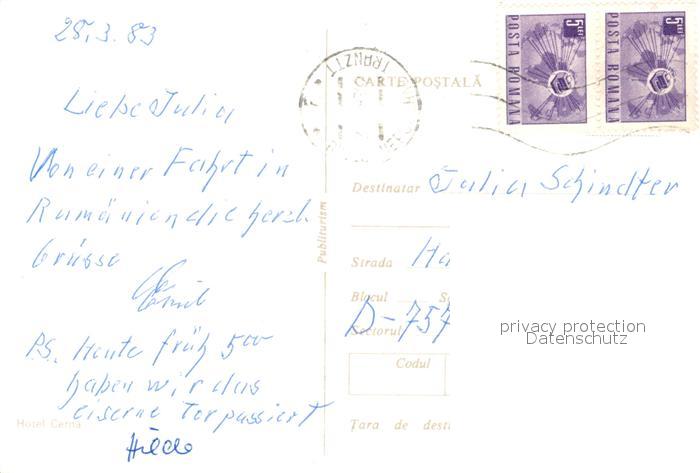 28.3.83
Liebe Julia
Von einer Fahrt in
Rumänien die herzl.
Grüsse
Emil
P.S. Heute früh 5⁰⁰
haben wir das
eiserne Tor passiert
Hilde
Hotel Cerna
Publiturism
TRANZIT
CARTE POȘTALĂ
5 LEI
POSTA ROMANA
5 LEI
POSTA ROMANA
Destinatar Julia Schindler
Strada Ha
Blocul
D-757
Sectorul
Codul
Țara de desti
privacy protection
Datenschutz